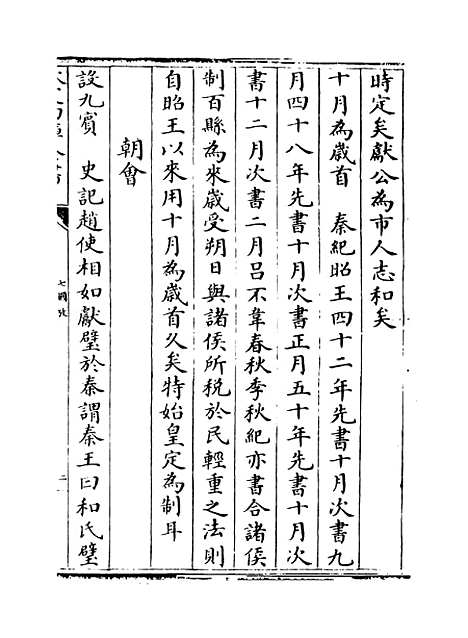 時定矣獻公為市人志和矣
十月為歲首　秦紀昭王四十二年先書十月次書九
月四十八年先書十月次書正月五十年先書十月次
書十二月次書二月呂不韋春秋季秋紀亦書合諸侯
制百縣為來歲受朔日與諸侯所稅於民輕重之法則
自昭王以來用十月為歲首久矣特始皇定為制耳
朝會
設九賓　史記趙使相如獻璧於秦謂秦王曰和氏璧
七國攷